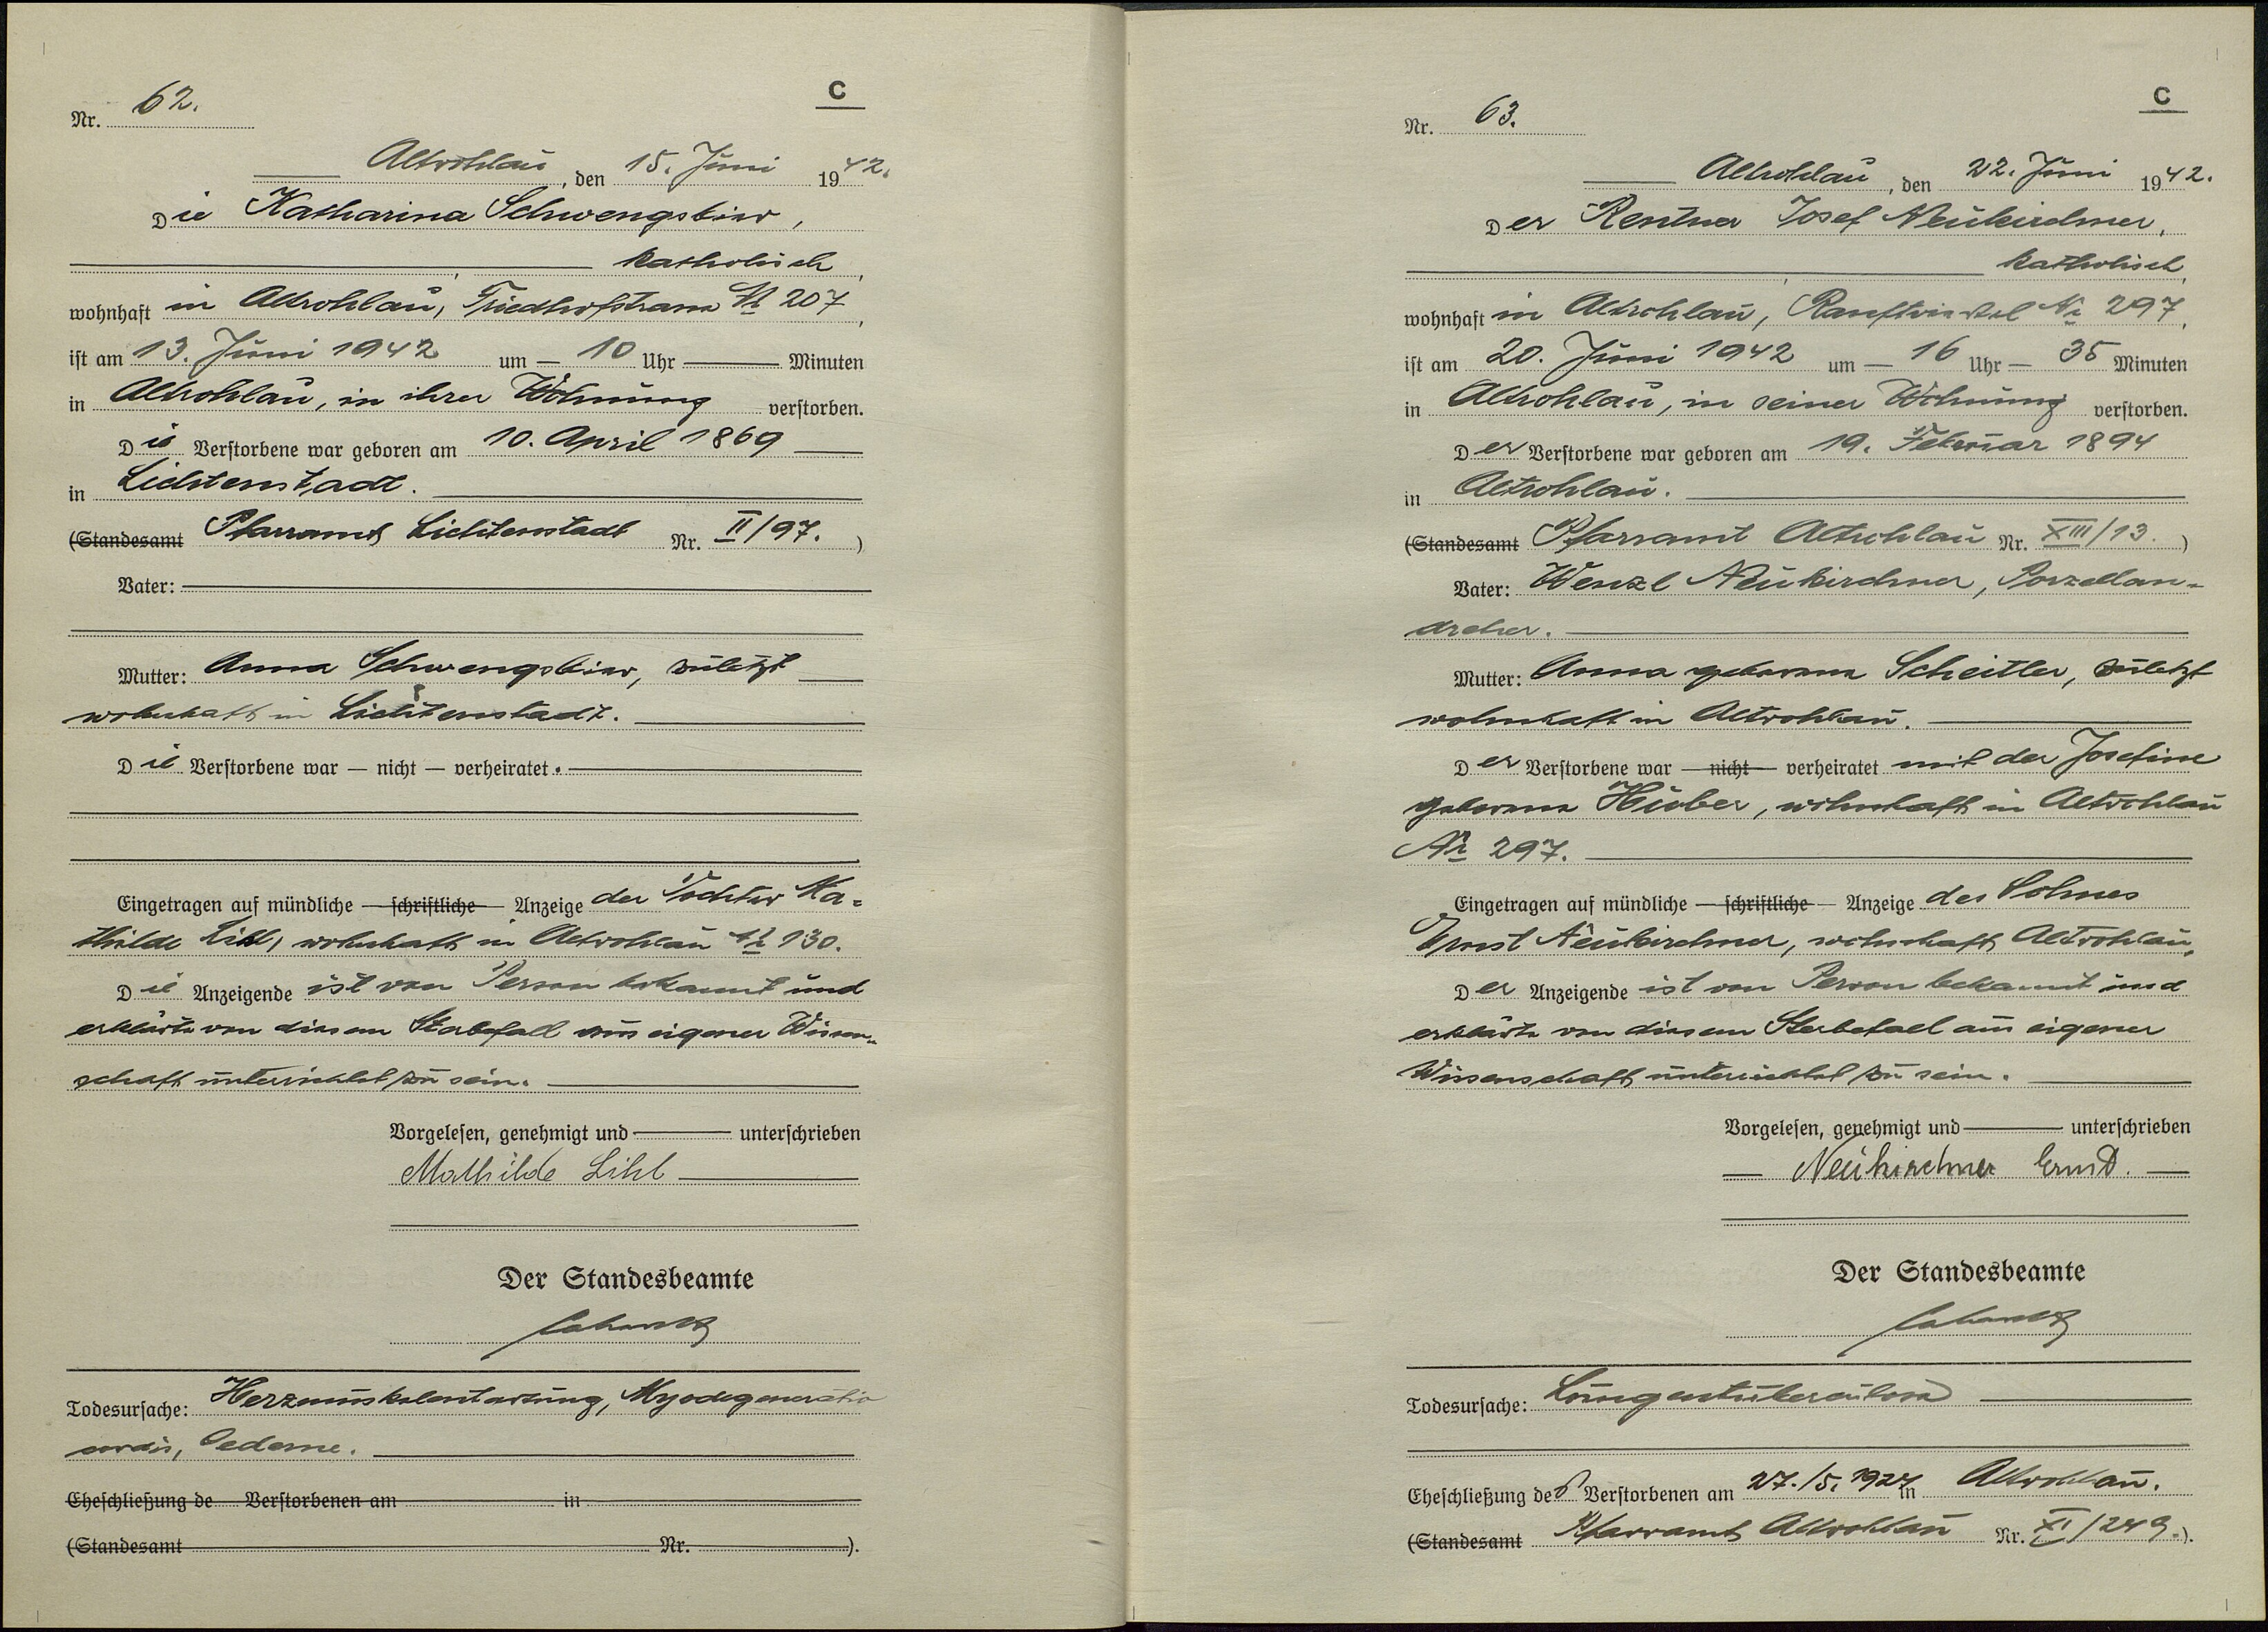 C
Nr. 62.
Altrohlau, den 15. Juni 1942.
Die Katharina Schwengsbier,
katholisch,
wohnhaft in Altrohlau, Friedhofstrasse № 207,
ist am 13. Juni 1942 um — 10 Uhr — Minuten
in Altrohlau, in ihrer Wohnung verstorben.
Die Verstorbene war geboren am 10. April 1869
in Lichtenstadt.
(Standesamt Pfarramt Lichtenstadt Nr. II/97.)
Vater:
Mutter: Anna Schwengsbier, zuletzt
wohnhaft in Lichtenstadt.
Die Verstorbene war — nicht — verheiratet.
Eingetragen auf mündliche — schriftliche — Anzeige der Tochter Ma=
thilde Lihl, wohnhaft in Altrohlau № 130.
Die Anzeigende ist von Person bekannt und
erklärte von diesem Sterbefall aus eigener Wissen-
schaft unterrichtet zu sein.
Vorgelesen, genehmigt und — unterschrieben
Mathilde Lihl
Der Standesbeamte
Todesursache: Herzmuskelentartung, Myodegeneratio
cordis, Oedeme.
Eheschließung de Verstorbenen am in
(Standesamt Nr. ).
C
Nr. 63.
Altrohlau, den 22. Juni 1942.
Der Rentner Josef Neukirchner,
katholisch,
wohnhaft in Altrohlau, Ranftwinkel Nr 297,
ist am 20. Juni 1942 um — 16 Uhr — 35 Minuten
in Altrohlau, in seiner Wohnung verstorben.
Der Verstorbene war geboren am 19. Februar 1894
in Altrohlau.
(Standesamt Pfarramt Altrohlau Nr. XIII/13.)
Vater: Wenzl Neukirchner, Porzellan-
dreher.
Mutter: Anna geborene Scheitler, zuletzt
wohnhaft in Altrohlau.
Der Verstorbene war — nicht — verheiratet mit der Josefine
geborene Huber, wohnhaft in Altrohlau
Nr 297.
Eingetragen auf mündliche — schriftliche — Anzeige des Sohnes
Ernst Neukirchner, wohnhaft Altrohlau.
Der Anzeigende ist von Person bekannt und
erklärte von diesem Sterbefall aus eigener
Wissenschaft unterrichtet zu sein.
Vorgelesen, genehmigt und — unterschrieben
— Neukirchner Ernst. —
Der Standesbeamte
Todesursache: Lungentuberculose
Eheschließung des Verstorbenen am 27./5. 1924 in Altrohlau.
(Standesamt Pfarramt Altrohlau Nr. XI/249.).